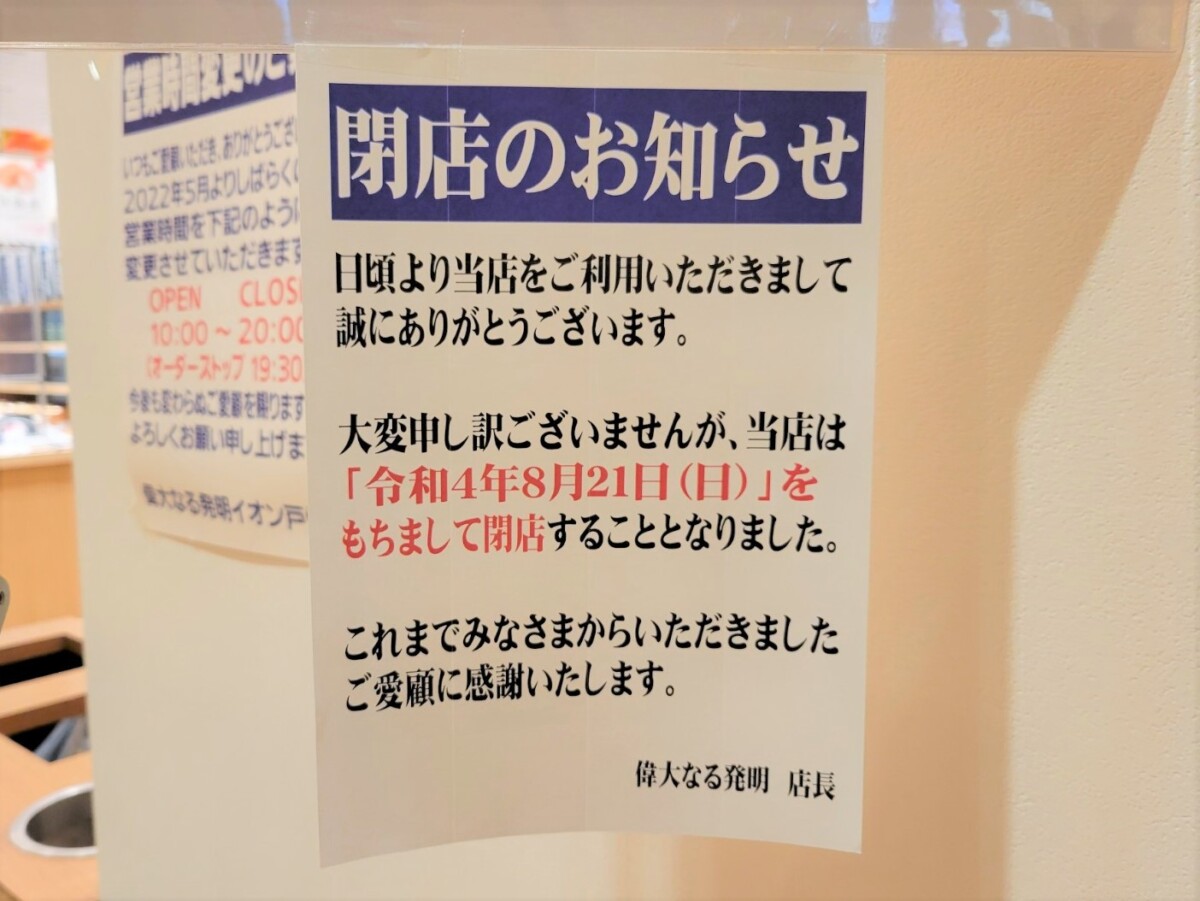 閉店のお知らせ
日頃より当店をご利用いただきまして
誠にありがとうございます。
大変申し訳ございませんが、当店は
「令和4年8月21日(日)」を
もちまして閉店することとなりました。
これまでみなさまからいただきました
ご愛顧に感謝いたします。
偉大なる発明 店長
営業時間変更のご
いつもご愛顧いただき、ありがとうござ
2022年5月よりしばらく
営業時間を下記のように
変更させていただきます
OPEN CLOS
10:00~20:00
(オーダーストップ 19:30
今後も変わらぬご愛顧を賜ります
よろしくお願い申し上げま
偉大なる発明イオン戸